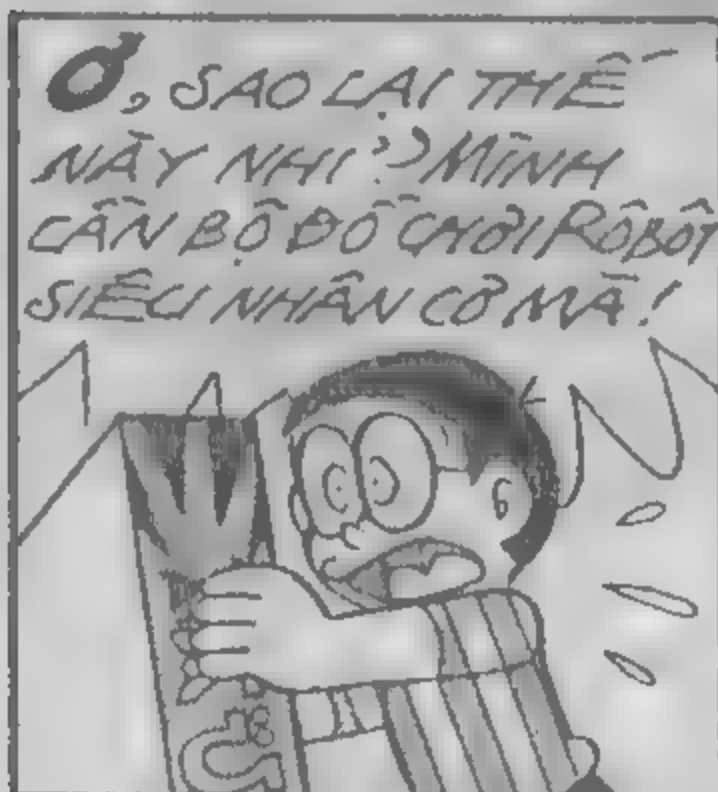 Ơ, SAO LẠI THẾ
NÀY NHỈ? MÌNH
CẦN BỘ ĐỒ CHƠI RÔBỐT
SIÊU NHÂN CƠ MÀ!